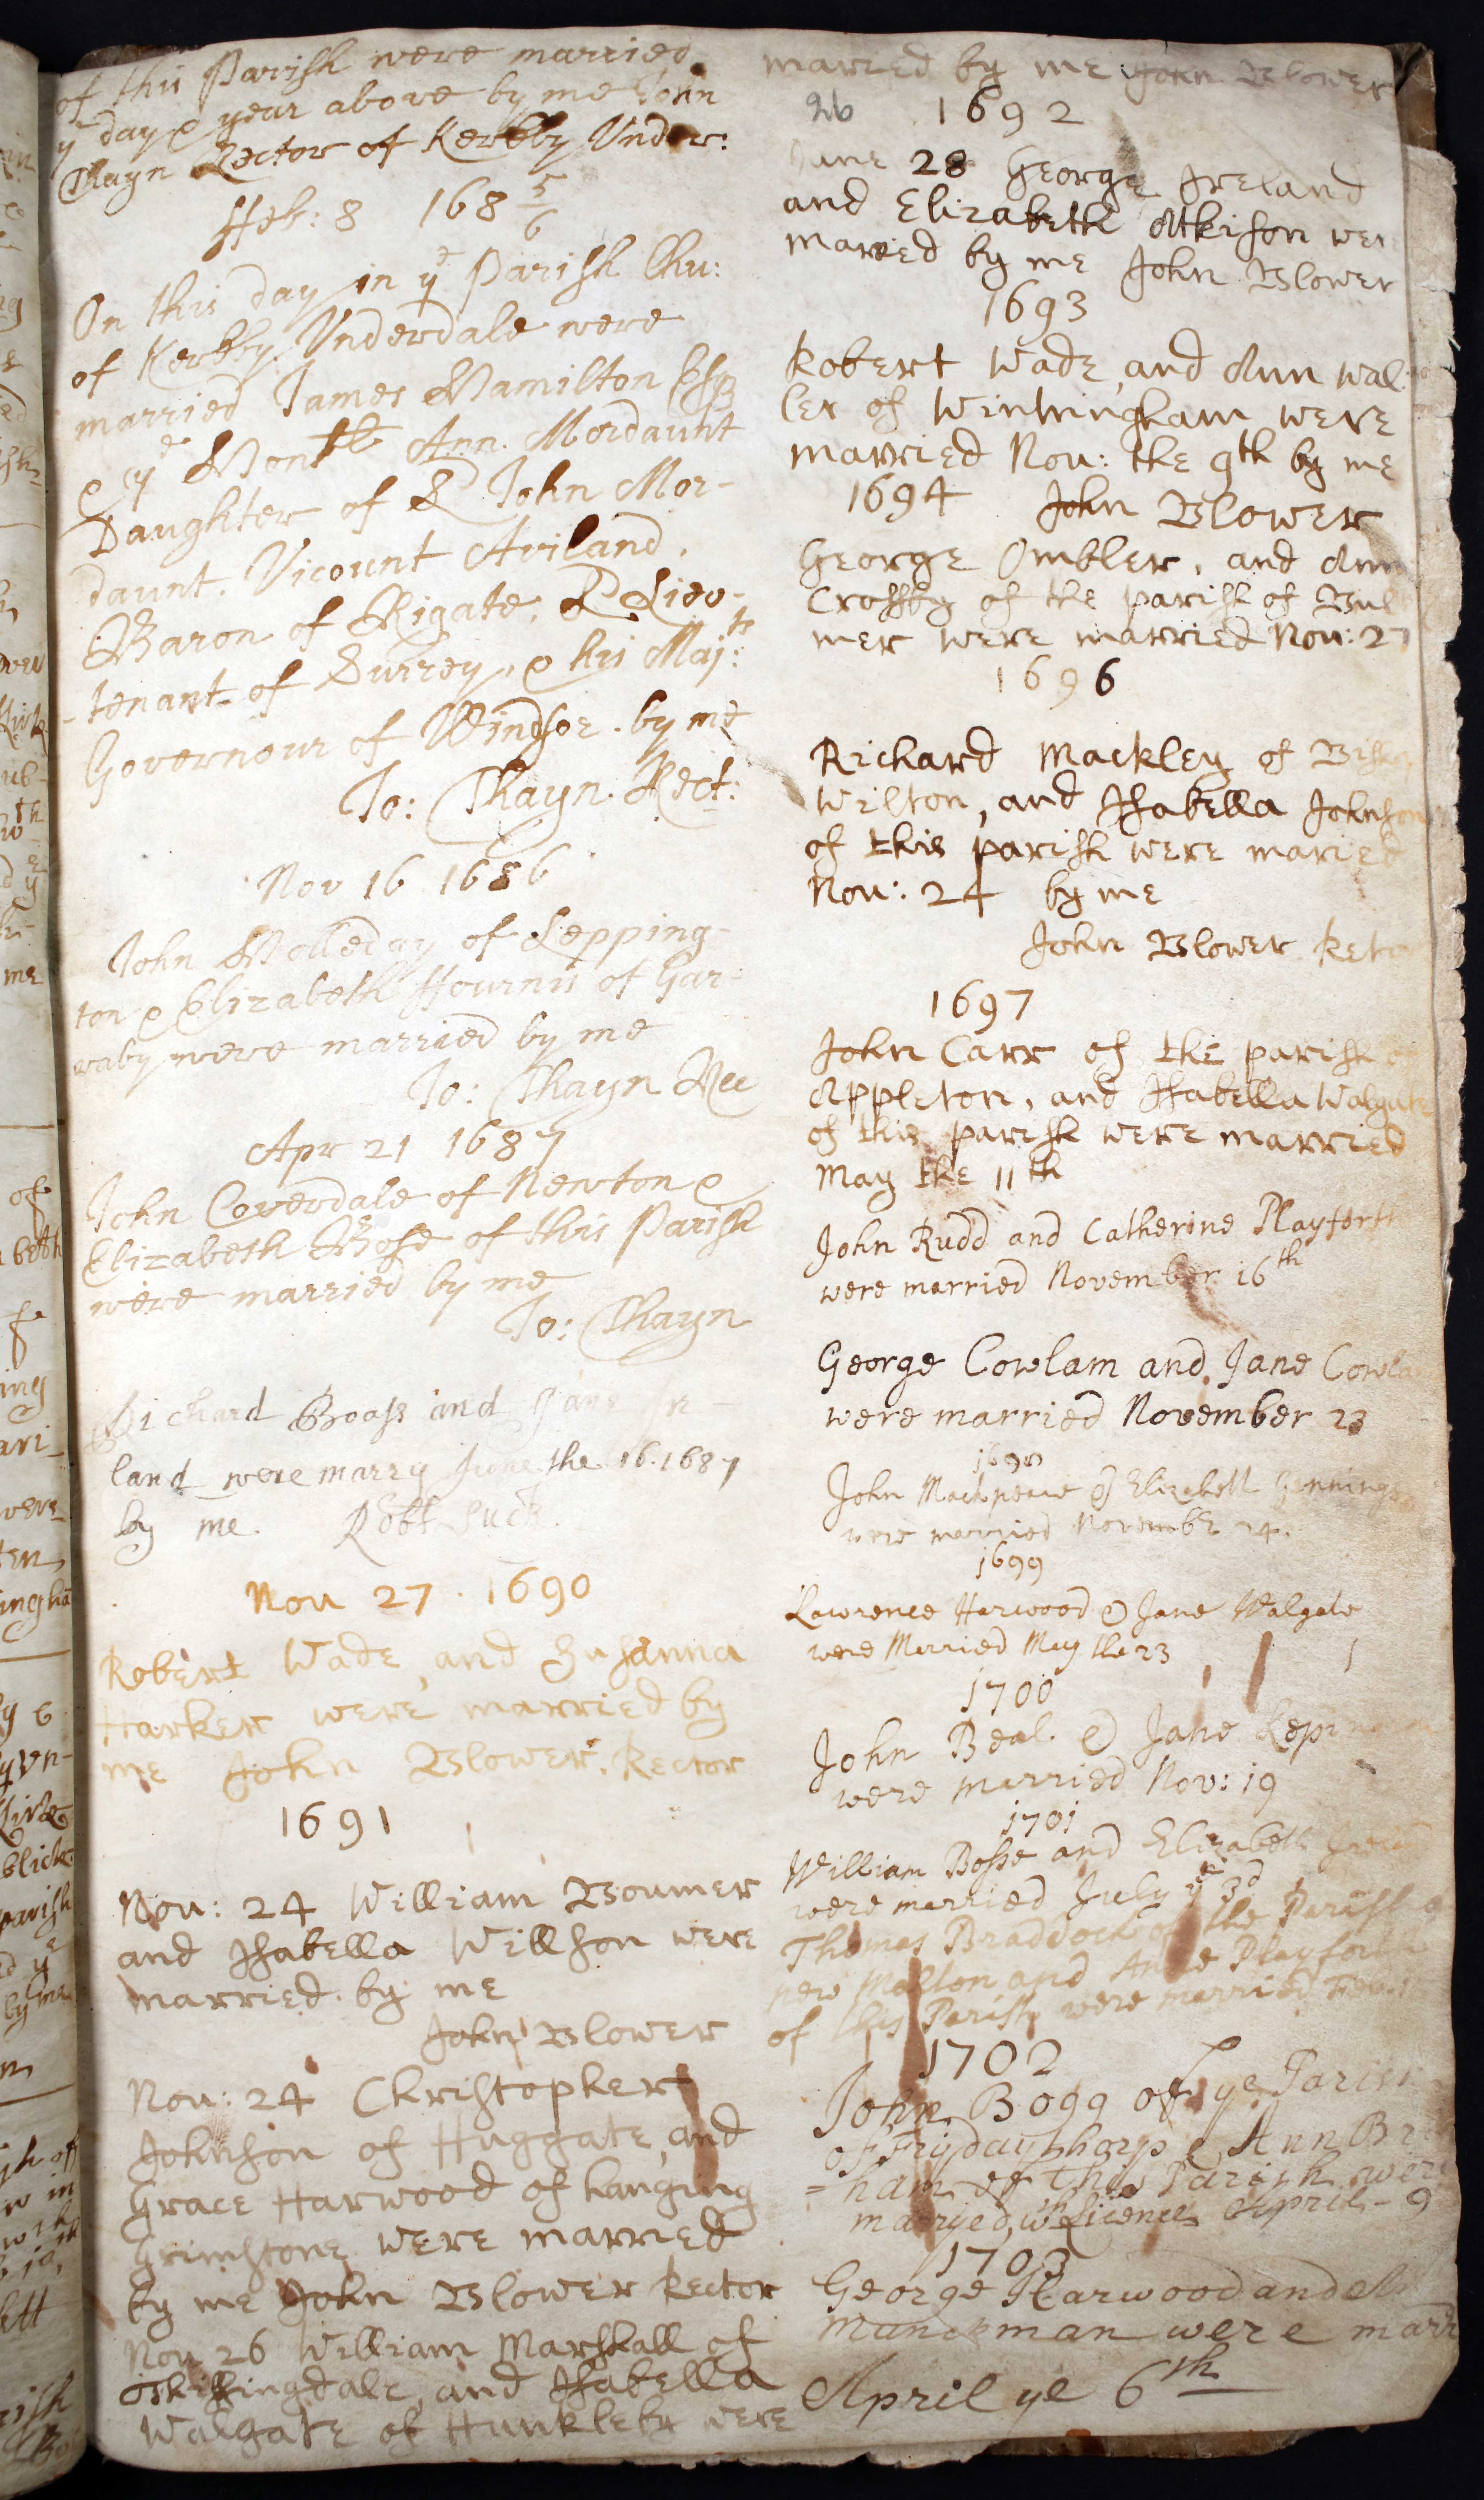 of this Parish were married
yͤ day & year above by me John
Thayn Rector of Kerkby Under:
Feb: 8 168 5/6
On this day in yͤ Parish Chu:
of Kerkby Underdale were
married James Hamilton Esqꝫ
& yͤ Ann. Mordaunt
Daughter of John Mor-
daunt, Vicount Aviland,
Baron of Rigate, Lieu-
-tenant of Surrey, & his Maj:ᵗˢ
Governour of Windsor. by me
Jo: Thayn. Rect:
Nov 16 1686
John Holleday of Lepping-
ton & Elizabeth of Gar-
raby were married by me
Jo: Thayn Rec
Apr 21 1687
John Coverdale of Newton &
Elizabeth Bose of this Parish
were married by me
Jo: Thayn
Richard Boass and Jane
land were marry June the 16. 1687
by me. Robt
Nou 27. 1690
Robert Wade, and Susanna
Harker were married by
me John Blower, Rector
1691
Nou: 24 William Boumer
and Isabella Willson were
married by me
John Blower
Nou: 24 Christopher
Johnson of Huggate, and
Grace Harwood of hanging
Grimstone were married
by me John Blower Rector
Nou 26 William Marshall of
and Isabella
Walgate of Hunkleby were
maried by me John Blower
26 1692
June 28 George Ireland
and Elizabeth Atkison were
maried by me John Blower
1693
Robert Wade, and Ann Wal-
ler of Wintringham were
married Nou: the 9th by me
1694 John Blower
George Ombler, and Ann
Crossby of the parish of Bul
mer were married Nou: 27
1696
Richard Mackley of
Wilton, and Isabella Johnson
of this parish were maried
Nou: 24 by me
John Blower
1697
John Carr of the parish of
Appleton, and Isabella Walgate
of this parish were married
May the 11th
John Rudd and Catherine Playforth
were married November 16th
George Cowlam and Jane
were married November 23
1698
John Mackpeace & Elizabeth Jennings
were married Novembr 24.
1699
Lawrence Harwood & Jane Walgate
were Married May the 23
1700
John Beal. & Jane
were married Nov: 19
1701
William Bosse and Elizabeth
were married July yͤ 3d
Thomas Braddock of the Parish
new Malton and Anne Playforth
of this Parish were married
1702
John Bogg of ye Parish
of Frydaythorp & Ann
=ham of this Parish were
marryed wth Licence April - 9
1703
George Harwood and
Manckman were
April ye 6th